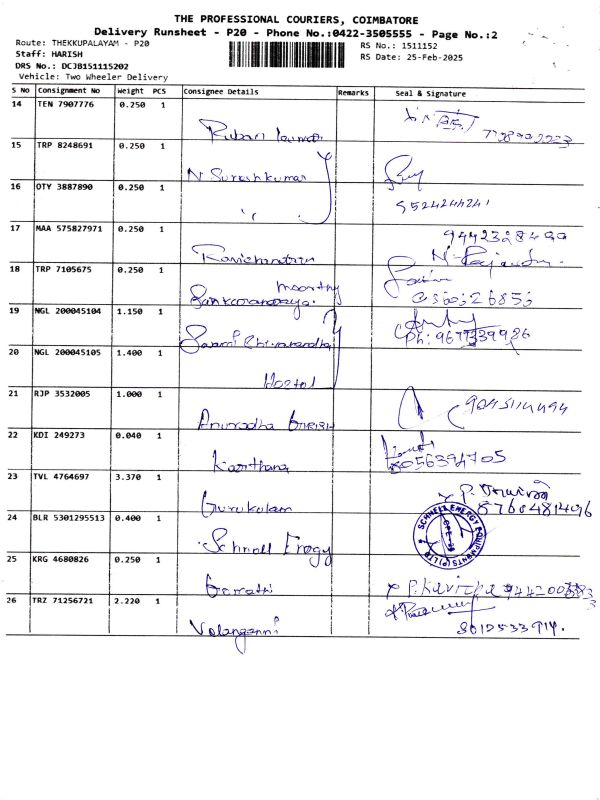 THE PROFESSIONAL COURIERS, COIMBATORE
Delivery Runsheet - P20 - Phone No.:0422-3505555 - Page No.:2
Route: THEKKUPALAYAM - P20
RS No.: 1511152
Staff: HARISH
RS Date: 25-Feb-2025
DRS No.: DCJB151115202
Vehicle: Two Wheeler Delivery
S No Consignment No Weight PCS Consignee Details Remarks Seal & Signature
14 TEN 7907776 0.250 1
15 TRP 8248691 0.250 1
N Sureshkumar
16 OTY 3887890 0.250 1
9524244241
17 MAA 575827971 0.250 1
Ravichandran
18 TRP 7105675 0.250 1
moorthy
Sankaranaraya.
19 NGL 200045104 1.150 1
Ph: 9677339986
Swami
20 NGL 200045105 1.400 1
Hostel
21 RJP 3532005 1.000 1
Anuradha
22 KDI 249273 0.040 1
8056394705
Keerthana
23 TVL 4764697 3.370 1
8760481496
Gurukulam
24 BLR 5301295513 0.400 1
SCHNELL ENERGY EQUIPMENTS (P) LTD
Schnell Enegy
25 KRG 4680826 0.250 1
P. Kavitha
Gomathi
26 TRZ 71256721 2.220 1
8012533914.
Velanganni